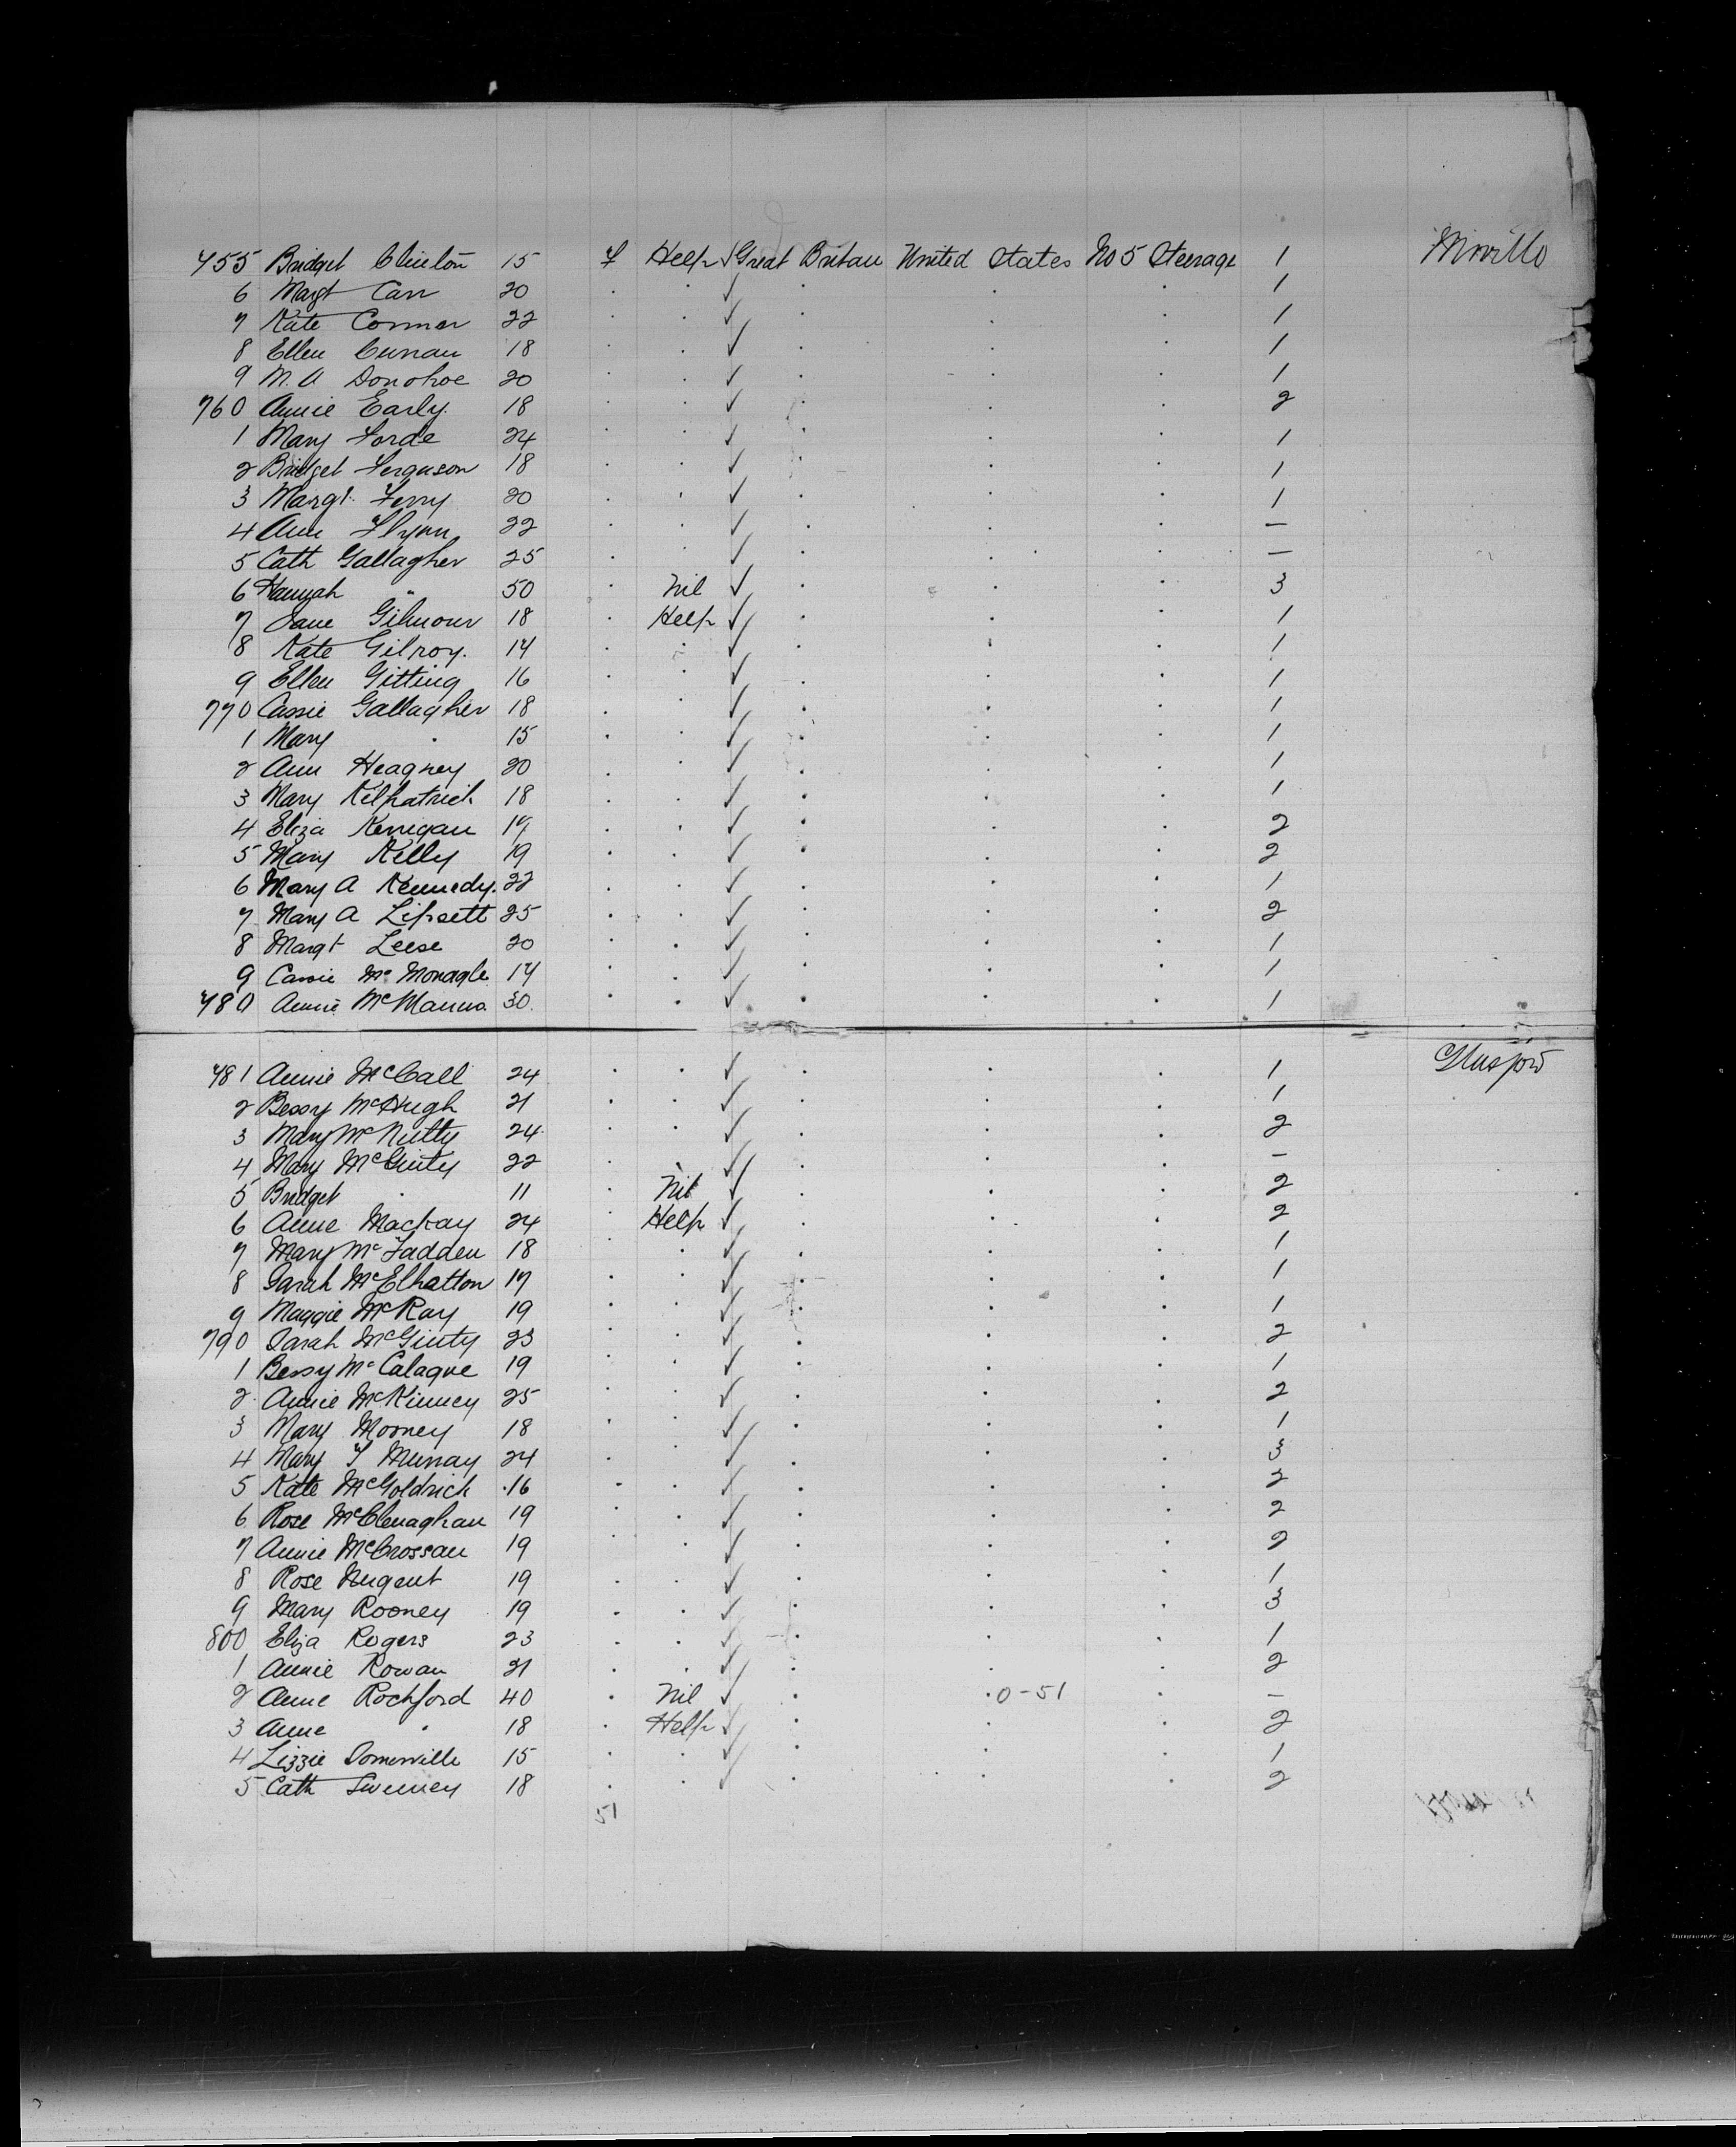 755 Bridget Clinton 15 f Help √ Great Britain United States No 5 Steerage 1 Moville
6 Margt Carr 20 . . √ . . . 1
7 Kate Connor 22 . . √ . . . 1
8 Ellen Curran 18 . . √ . . . 1
9 M. A Donohoe 20 . . √ . . . 1
760 Annie Early. 18 . . √ . . . 2
1 Mary Forde 24 . . √ . . . 1
2 Bridget Ferguson 18 . . √ . . . 1
3 Margt. Ferry 20 . . √ . . . 1
4 Ann Flynn 22 . . √ . . . —
5 Cath Gallagher 25 . . √ . . . —
6 Hannah " 50 . Nil √ . . . 3
7 Jane Gilmour 18 . Help √ . . . 1
8 Kate Gilroy. 17 . . √ . . . 1
9 Ellen Gitting 16 . . √ . . . 1
770 Cassie Gallagher 18 . . √ . . . 1
1 Mary . 15 . . √ . . . 1
2 Ann Heagney 20 . . √ . . . 1
3 Mary Kilpatrick 18 . . √ . . . 1
4 Eliza Kerrigan 17 . . √ . . . 2
5 Mary Kelly 19 . . √ . . . 2
6 Mary A Kennedy. 22 . . √ . . . 1
7 Mary A Lipsett 25 . . √ . . . 2
8 Margt Leese 20 . . √ . . . 1
9 Cassie Mc Monagle 17 . . √ . . . 1
780 Annie McManus. 30. . . √ . . . 1
781 Annie McCall 24 . . √ . . 1 Glasgow
2 Bessy McHugh 21 . . √ . . . 1
3 Mary McNulty 24 . . √ . . . 2
4 Mary McGinty 22 . . √ . . . —
5 Bridget . 11 . Nil √ . . . 2
6 Anne Mackay 24 . Help √ . . . 2
7 Mary McFadden 18 . . √ . . . 1
8 Sarah McElhatton 17 . . √ . . . 1
9 Maggie McRay 19 . . √ . . . 1
790 Sarah McGinty 23 . . √ . . . 2
1 Bessy McCalague 19 . . √ . . . 1
2. Annie McKinney 25 . . √ . . . 2
3 Mary Mooney 18 . . √ . . . 1
4 Mary Murray 24 . . √ . . . 3
5 Kate McGoldrick 16 . . √ . . . 2
6 Rose McClenaghan 19 . . √ . . . 2
7 Annie McCrossan 19 . . √ . . . 2
8 Rose Nugent 19 . . √ . . . 1
9 Mary Rooney 19 . . √ . . . 3
800 Eliza Rogers 23 . . √ . . . 1
1 Annie Rowan 21 . . √ . . . 2
2 Anne Rochford 40 . Nil √ . . 0-51 . —
3 Anne . 18 . Help √ . . . 2
4 Lizzie Somerville 15 . . √ . . . 1
5 Cath Sweeney 18 . . √ . . . 2
51